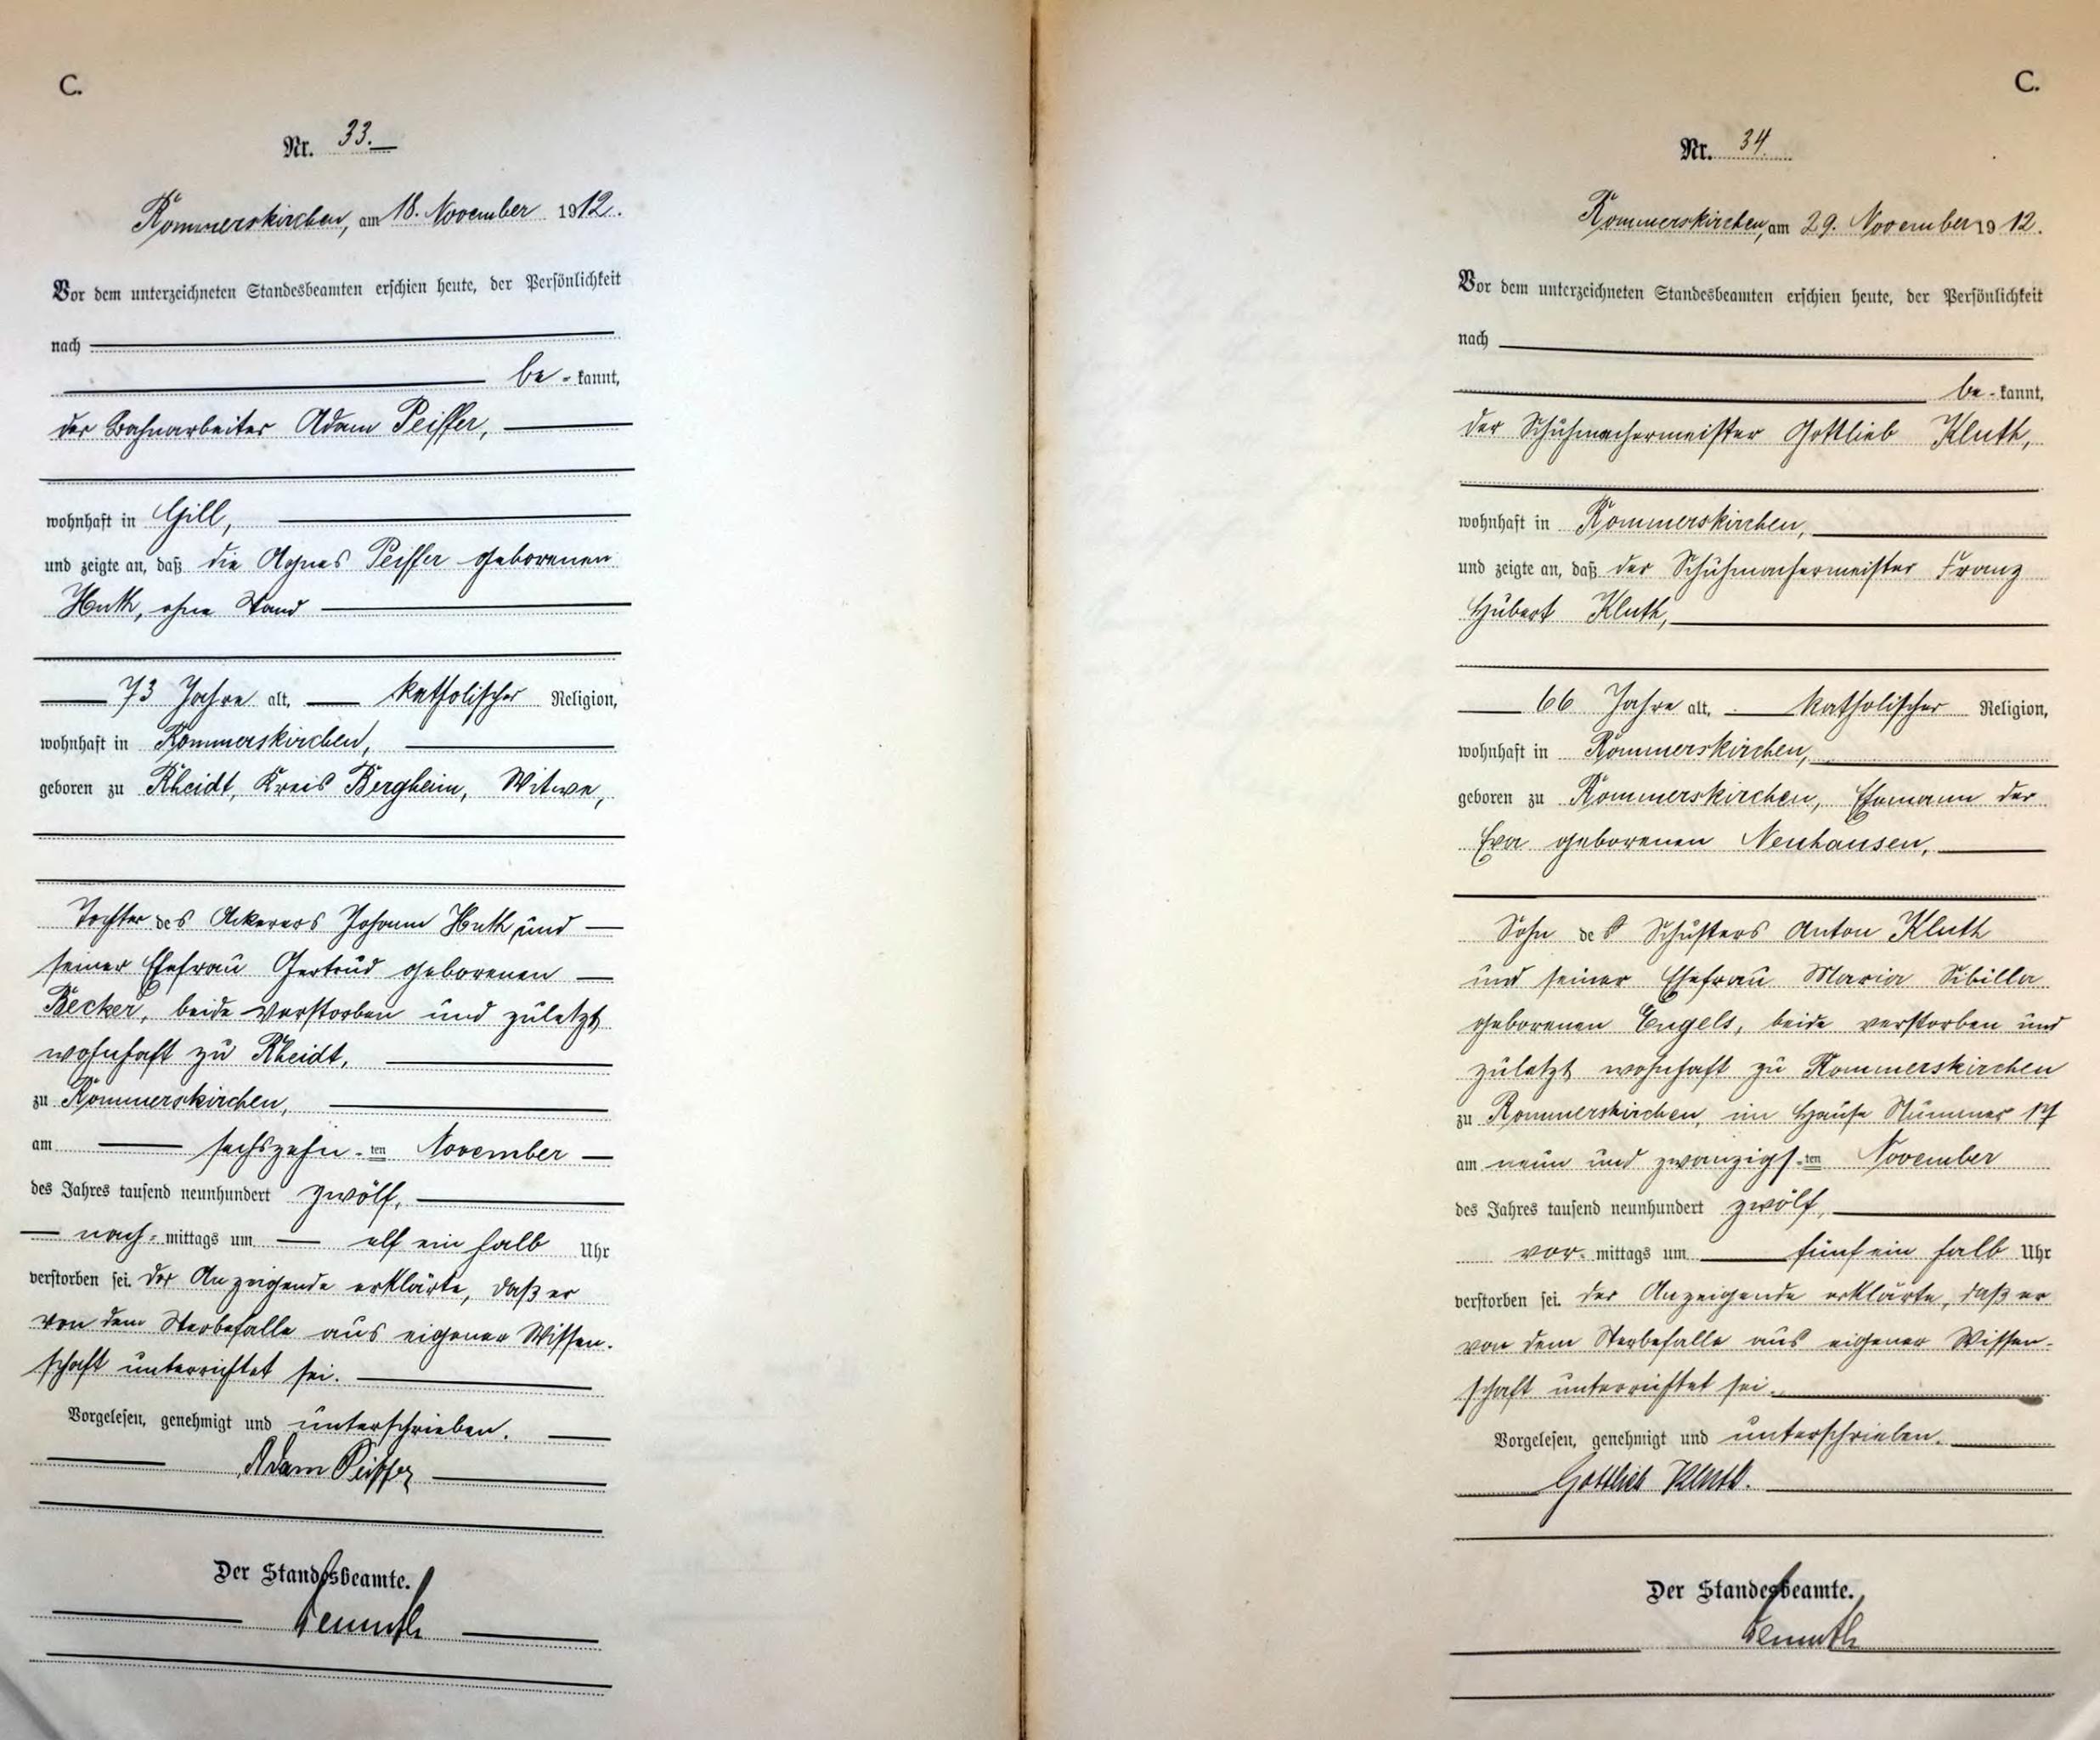 C.
Nr. 33.
Rommerskirchen, am 18. November 1912.
Vor dem unterzeichneten Standesbeamten erschien heute, der Persönlichkeit
nach
be-kannt,
der Bahnarbeiter Adam Peiffer,
wohnhaft in Gill,
und zeigte an, daß die Agnes Peiffer geborenen
Huth, ohne Stand
73 Jahre alt, katholischer Religion,
wohnhaft in Rommerskirchen,
geboren zu Rheidt, Kreis Bergheim, Witwe,
Tochter des Ackerers Johann Huth und
seiner Ehefrau Gertrud geborenen
Becker, beide verstorben und zuletzt
wohnhaft zu Rheidt,
zu Rommerskirchen,
am sechszehn-ten November
des Jahres tausend neunhundert zwölf,
nach-mittags um elf ein halb Uhr
verstorben sei. Der Anzeigende erklärte, daß er
von dem Sterbefalle aus eigener Wissen-
schaft unterrichtet sei.
Vorgelesen, genehmigt und unterschrieben.
Adam Peiffer
Der Standesbeamte.
C.
Nr. 34.
Rommerskirchen, am 29. November 1912.
Vor dem unterzeichneten Standesbeamten erschien heute, der Persönlichkeit
nach
be-kannt,
der Schuhmachermeister Gottlieb Kluth,
wohnhaft in Rommerskirchen,
und zeigte an, daß der Schuhmachermeister Franz
Hubert Kluth,
66 Jahre alt, katholischer Religion,
wohnhaft in Rommerskirchen,
geboren zu Rommerskirchen, Ehemann der
Eva geborenen Neuhausen,
Sohn des Schusters Anton Kluth
und seiner Ehefrau Maria Sibilla
geborenen Engels, beide verstorben und
zuletzt wohnhaft zu Rommerskirchen
zu Rommerskirchen, im Hause Nummer
am neun und zwanzigs-ten November
des Jahres tausend neunhundert zwölf,
vor-mittags um fünf ein halb Uhr
verstorben sei. Der Anzeigende erklärte, daß er
von dem Sterbefalle aus eigener Wissen-
schaft unterrichtet sei.
Vorgelesen, genehmigt und unterschrieben.
Gottlieb Kluth.
Der Standesbeamte.